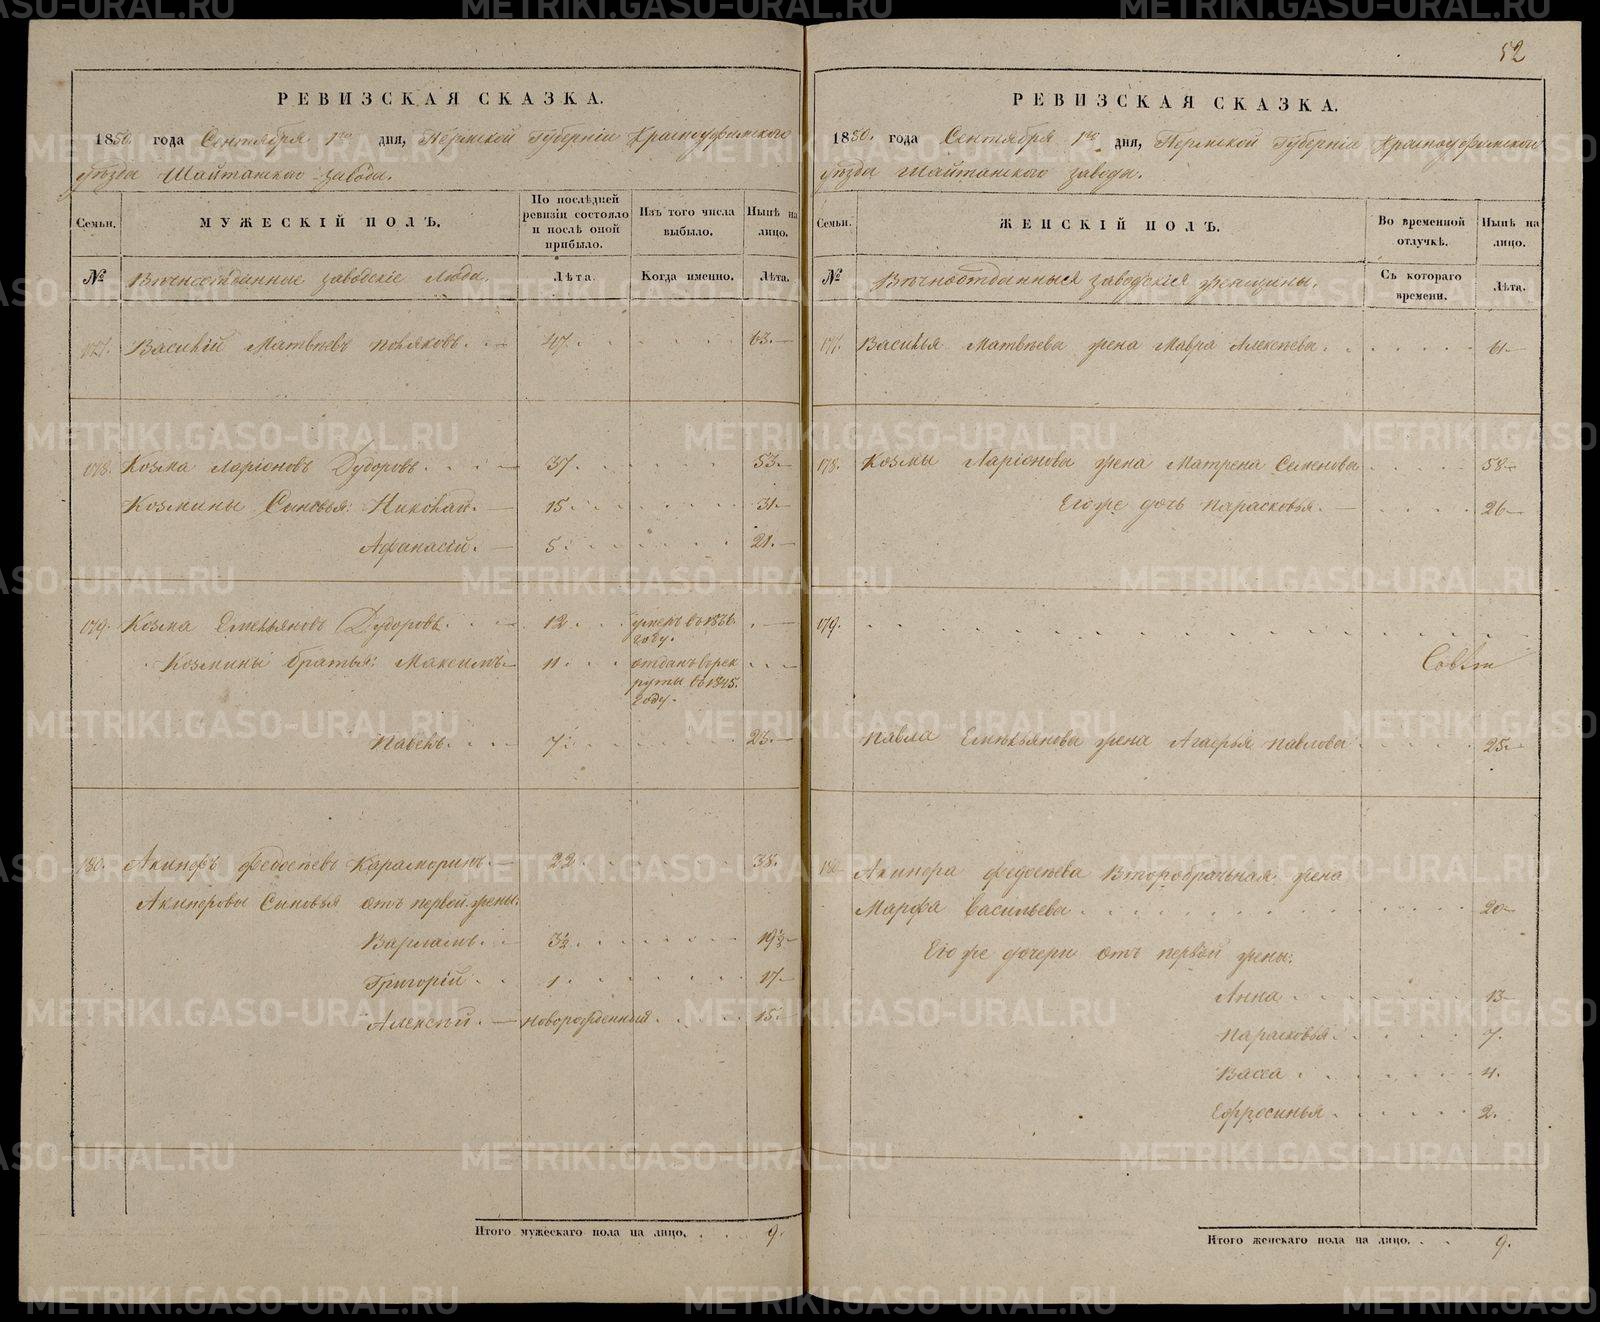 52
РЕВИЗСКАЯ СКАЗКА.
1850. года Сентября 1го дня, Пермской Губерніи Красноуфимского
уѣзда Шайтанского завода.
Семьи.
МУЖЕСКІЙ ПОЛЪ.
По послѣдней ревизіи состояло и послѣ оной прибыло.
Изъ того числа выбыло.
Нынѣ на лицо.
№
Вѣчноотданные заводскіе люди.
Лѣта.
Когда именно.
Лѣта.
177. Василій Матвѣевъ Поляковъ. 47. 63.
178. Козма Ларіоновъ Дудоровъ. 37. 53.
Козмины Сыновья: Николай. 15. 31.
Афанасій. 5. 21.
179. Козма Емельяновъ Дудоровъ. 12. умеръ въ 1836.
году.
Козмины братья: Максимъ 11. отданъ в рек
руты въ 1845.
году.
Павелъ. 7. 23.
180. Акинфъ Федосѣевъ Караморинъ. 22. 38.
Акинфовы Сыновья отъ первой жены:
Варламъ. 3½. 19½
Григорій 1. 17
Алексѣй. новорожденный. 15.
Итого мужескаго пола на лицо. 9.
РЕВИЗСКАЯ СКАЗКА.
1850. года Сентября 1го дня, Пермской Губерніи Красноуфимского
уѣзда Шайтанского завода.
Семьи.
ЖЕНСКІЙ ПОЛЪ.
Во временной отлучкѣ.
Нынѣ на лицо.
№
Вѣчноотданныя заводскія женщины.
Съ котораго времени.
Лѣта.
177. Василья Матвѣева жена Мавра Алексѣева. 61
178. Козмы Ларіонова жена Матрена Семенова 58
Его же дочь Парасковья. 26
179.
Павла Емельянова жена Агафья Павлова 25.
180. Акинфа Федосѣева второбрачная жена
Марфа Васильева. 20
Его же дочери отъ первой жены:
Анна 13
Парасковья. 7.
Васса 4.
Ефросинья 2.
Итого женскаго пола на лицо. 9.
METRIKI.GASO-URAL.RU